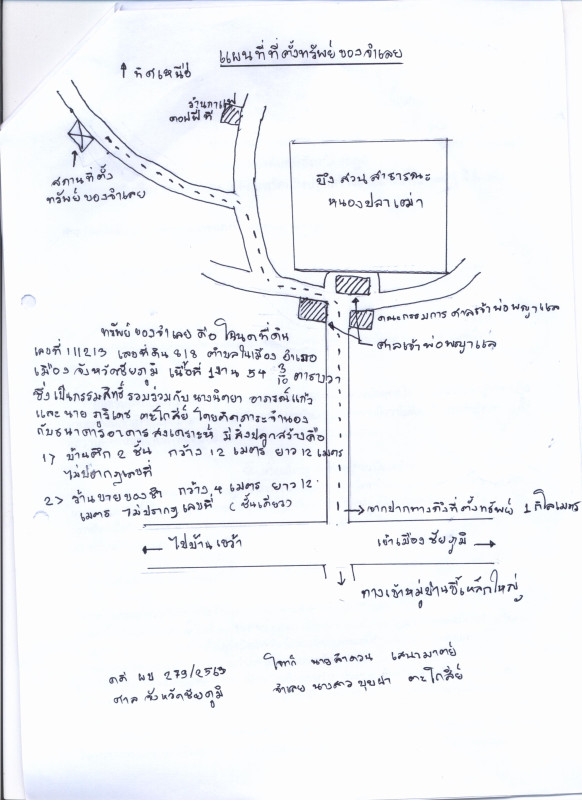 แผนที่ที่ตั้งทรัพย์ของจำเลย
ทิศเหนือ
ร้านกาแฟ
สถานที่ตั้ง
ทรัพย์ของจำเลย
บึงสวนสาธารณะ
หนองปลาเฒ่า
คณะกรรมการศาลเจ้าพ่อพญาแล
ศาลเจ้าพ่อพญาแล
ทรัพย์ของจำเลย คือ โฉนดที่ดิน
เลขที่ 111213 เลขที่ดิน 818 ตำบลในเมือง อำเภอ
เมือง จังหวัดชัยภูมิ เนื้อที่ 1 งาน 54 3/10 ตารางวา
ซึ่งเป็นกรรมสิทธิ์รวมร่วมกับ นางนิตยา อาภรณ์แก้ว
และ นาย ภูริเดช ตะโกสีย์ โดยติดภาระจำนอง
กับธนาคารอาคารสงเคราะห์ มีสิ่งปลูกสร้างคือ
1) บ้านตึก 2 ชั้น กว้าง 12 เมตร ยาว 12 เมตร
ไม่ปรากฏเลขที่
2) ร้านขายของชำ กว้าง 4 เมตร ยาว 12
เมตร ไม่ปรากฏเลขที่ (ชั้นเดียว)
จากปากทางถึงที่ตั้งทรัพย์ 1 กิโลเมตร
ไปบ้านเขว้า
เข้าเมืองชัยภูมิ
ทางเข้าหมู่บ้านขี้เหล็กใหญ่
คดี ผบ 279/2563
ศาล จังหวัดชัยภูมิ
โจทก์ นายลำดวน เสนามาตย์
จำเลย นางสาว บุบผา ตะโกสีย์